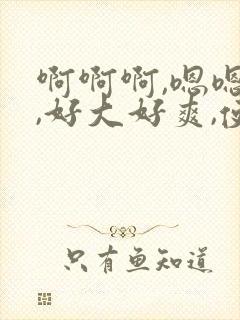 啊啊啊,嗯嗯
,好大好爽,
只有鱼知道